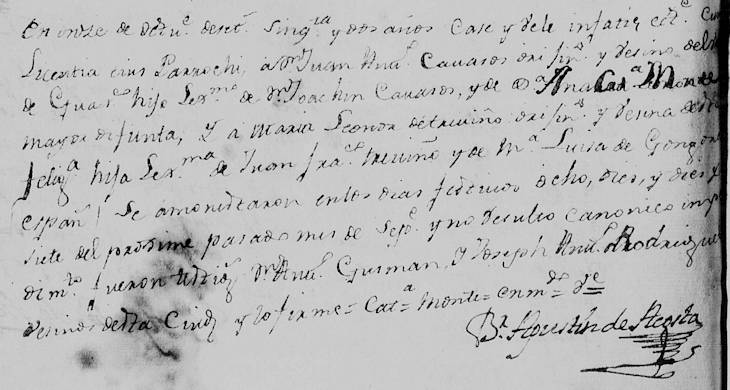 En onze de Octu.e de set.s sinq.ta y dos años Case y Vele infatie ecc.e Cum
Licentia eius Parrochi, a Dn Juan Anto.  Cavasos orixin.o y Vesino del
de Gua hijo Lex.mo de Dn Joachin Cavasos, y de Da Ana
mayor difunta, Y a Maria Leonor de treviño orixin.a y Vesina de
feliz.a hija Lex.ma de Juan fra.co treviño y de M.a Luisa de Gonz
(españ.s) Se amonestaron en los dias festivos ocho, dies, y dies y
siete del proximo pasado mes de Sep.e y no Resulto Canonico imp
dim.to fueron testig.s Dn Anto. Gusman, Y Joseph Anto. Rodrigues
Vesinos desta Ciud. y lo firme = Cat.a Monte = enm.do Ve
Br. Agustin de Acosta